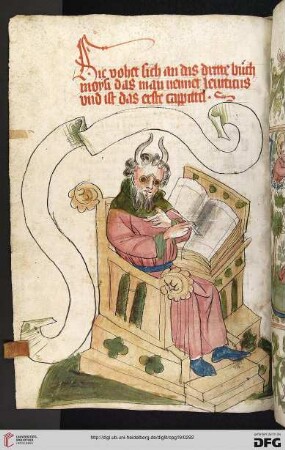 Hie vohet sich an das dritte buch
moysi das man nennet leuiticus
vnd ist das erste cappittel
http://digi.ub.uni-heidelberg.de/diglit/cpg19/0202
UNIVERSITÄTS-
BIBLIOTHEK
HEIDELBERG
DFG